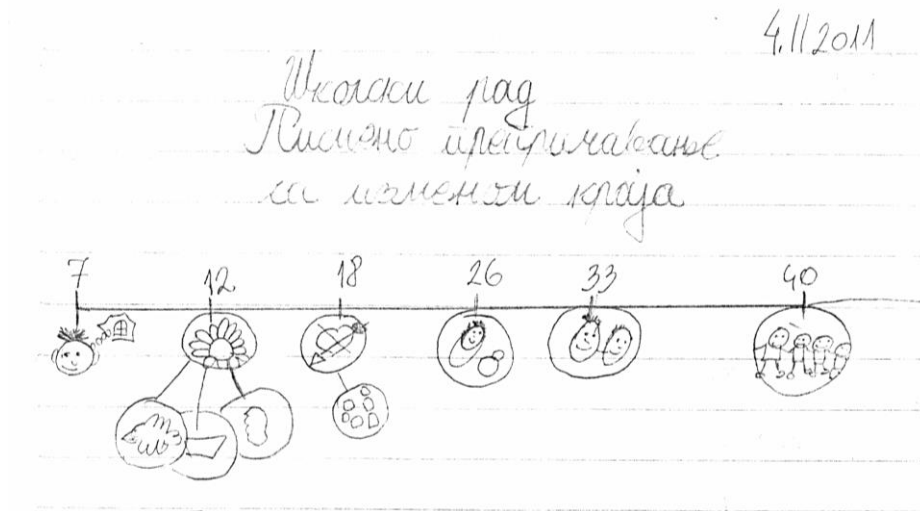 4.II 2011
Школски рад
Писмено препричавање
са изменом краја
7 12 18 26 33 40